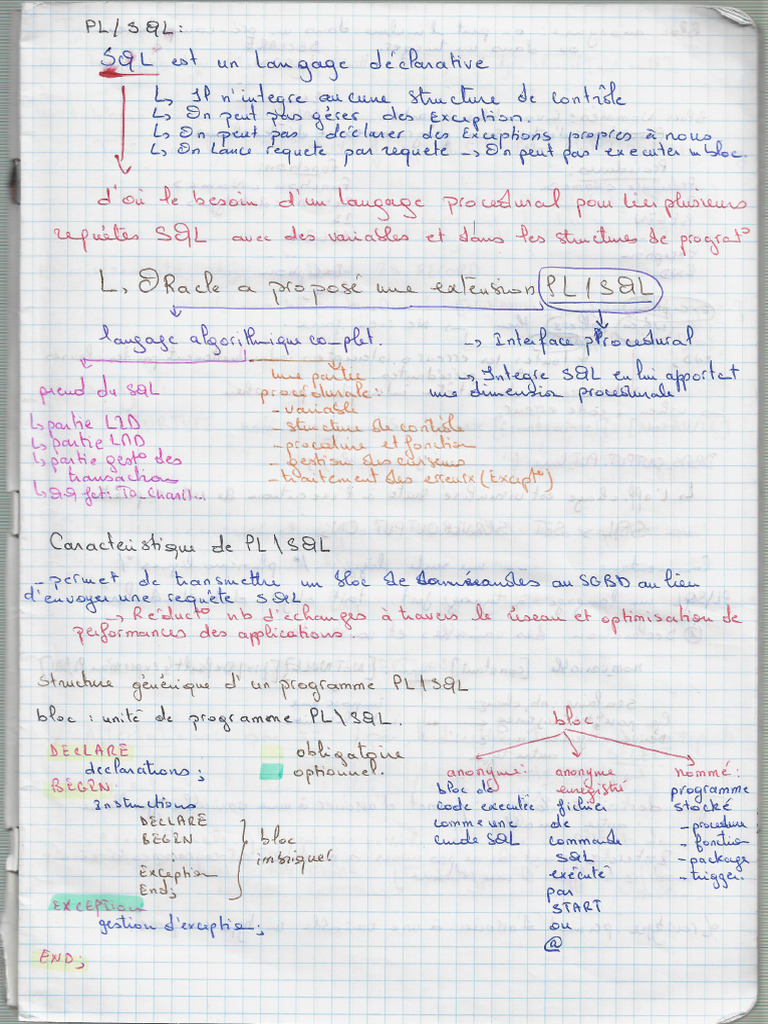 PL/SQL:
SQL est un langage déclarative
↳ Il n'integre aucune structure de contrôle
↳ On peut pas gérer des Exception.
↳ On peut pas déclarer des Exceptions propres à nous
↳ On lance requete par requete → On peut pas executer un bloc.
d'où le besoin d'un langage procedural pour lier plusieurs
requêtes SQL avec des variables et dans les structures de prograt°
↳ ORacle a proposé une extension PL/SQL
langage algorithmique complet.
→ Interface procedural
→ Integre SQL en lui apportat
une dimension procedurale
prend du SQL
↳ partie LID
↳ partie LMD
↳ partie gest° des
transaction
↳ qq fct: To_Char()...
une partie
procédurale:
- variable
- structure de contrôle
- procedure et fonction
- gestion des curseurs
- traitement des erreurx (Except°)
Caracteristique de PL\SQL
- permet de transmettre un bloc de commandes au SGBD au lieu
d'envoyer une requête SQL
→ Réduct° nb d'echanges à travers le réseau et optimisation de
performances des applications.
Structure générique d'un programme PL\SQL
bloc : unité de programme PL\SQL.
DECLARE
declarations;
BEGIN
Instructions
DECLARE
BEGIN
:
Exception
End;
bloc
imbriquer
EXCEPTION
gestion d'exceptio;
END;
obligatoire
optionnel.
bloc
anonyme:
bloc de
code executée
comme une
cmde SQL
anonyme
enregistré
fichier
de
commande
SQL
exécuté
par
START
ou
@
nommé:
programme
stocké
- procedure
- fonction
- package
- trigger.